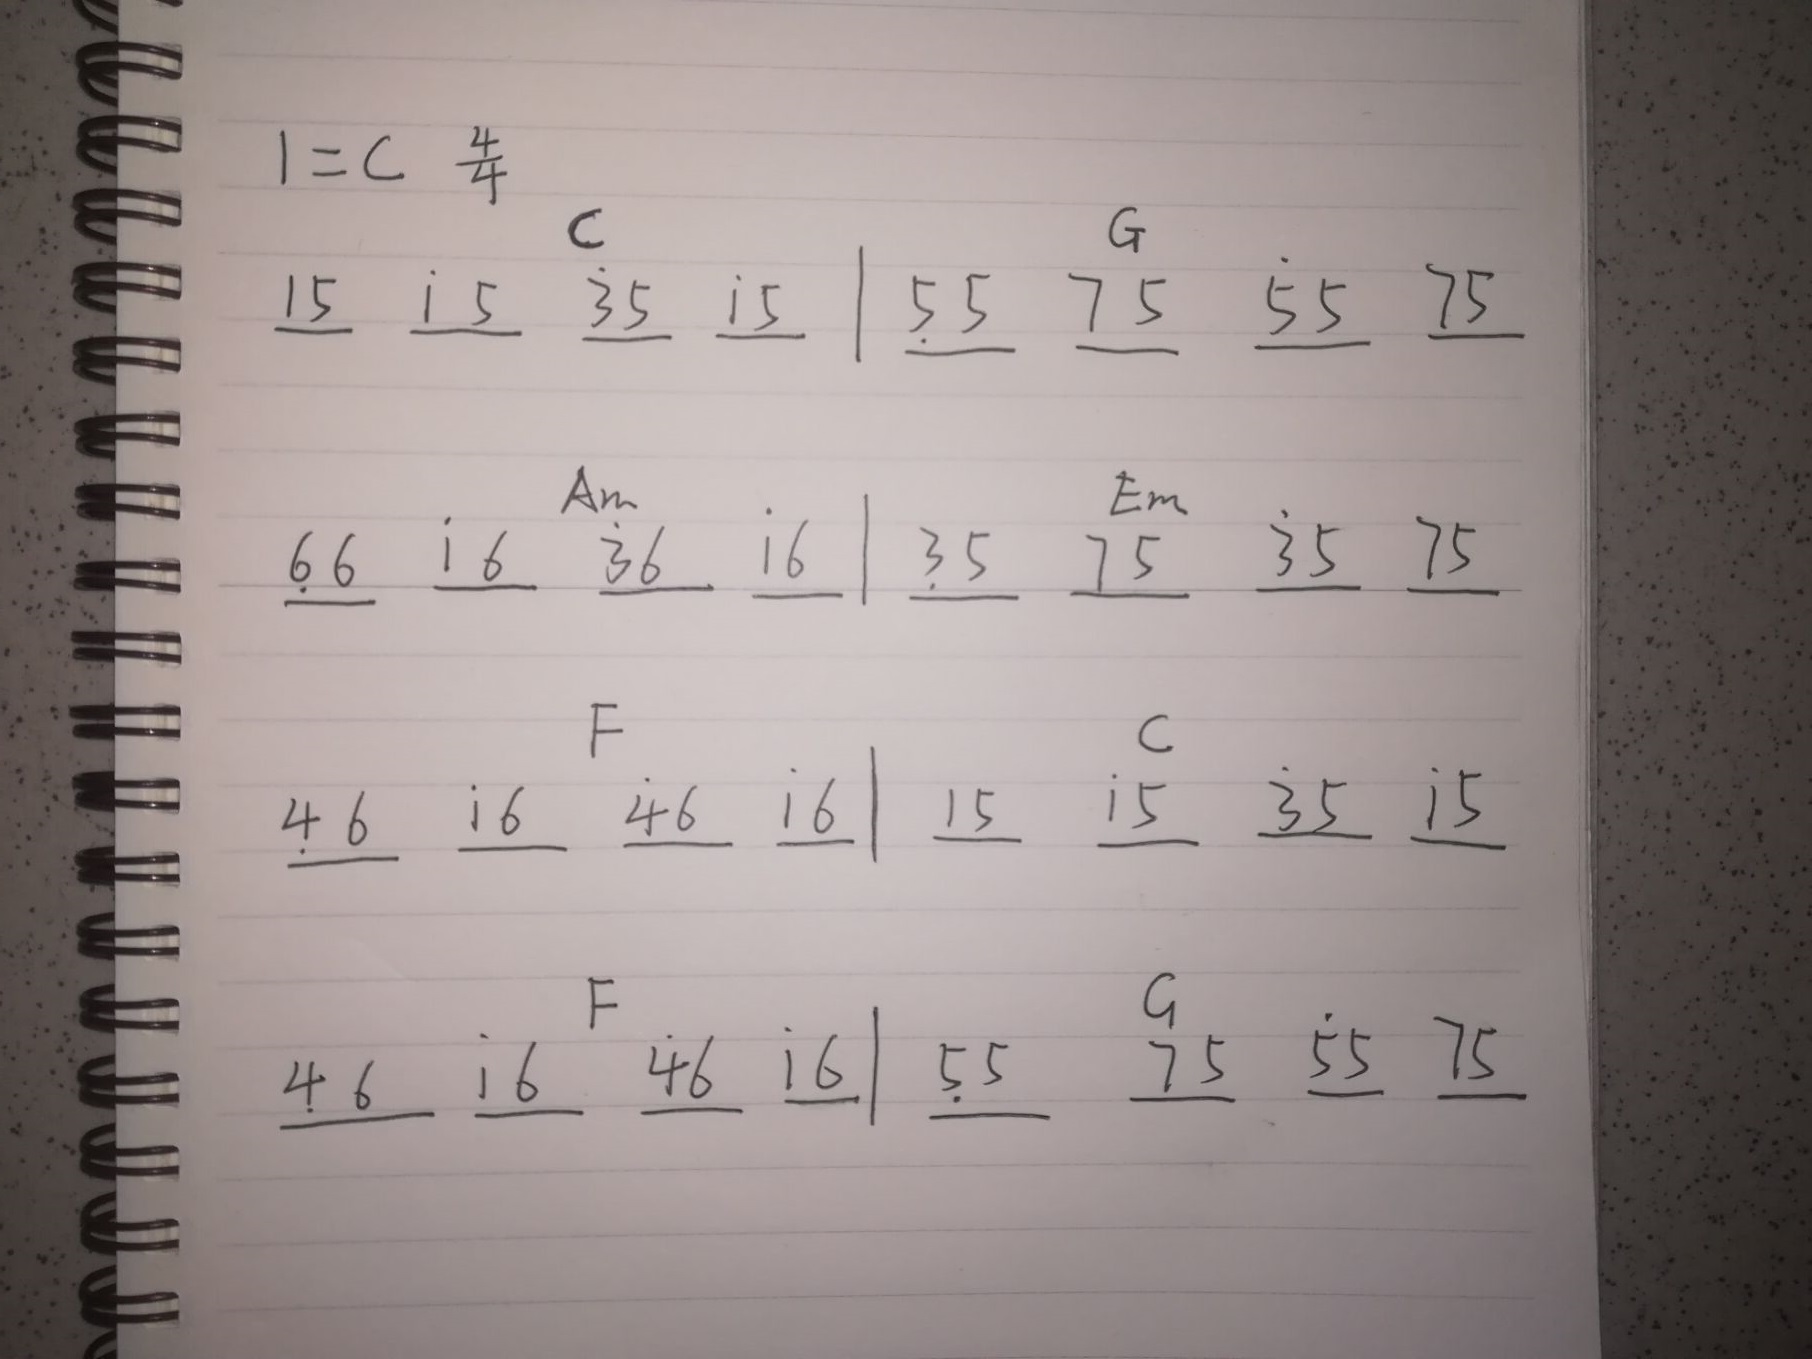 1=C 4/4
C G
15 i5 3̇5 i5 | 5̣5 75 5̇5 75
Am Em
6̣6 i6 3̇6 i6 | 3̣5 75 3̇5 75
F C
4̣6 i6 4̇6 i6 | 15 i5 3̇5 i5
F G
4̣6 i6 4̇6 i6 | 5̣5 75 5̇5 75